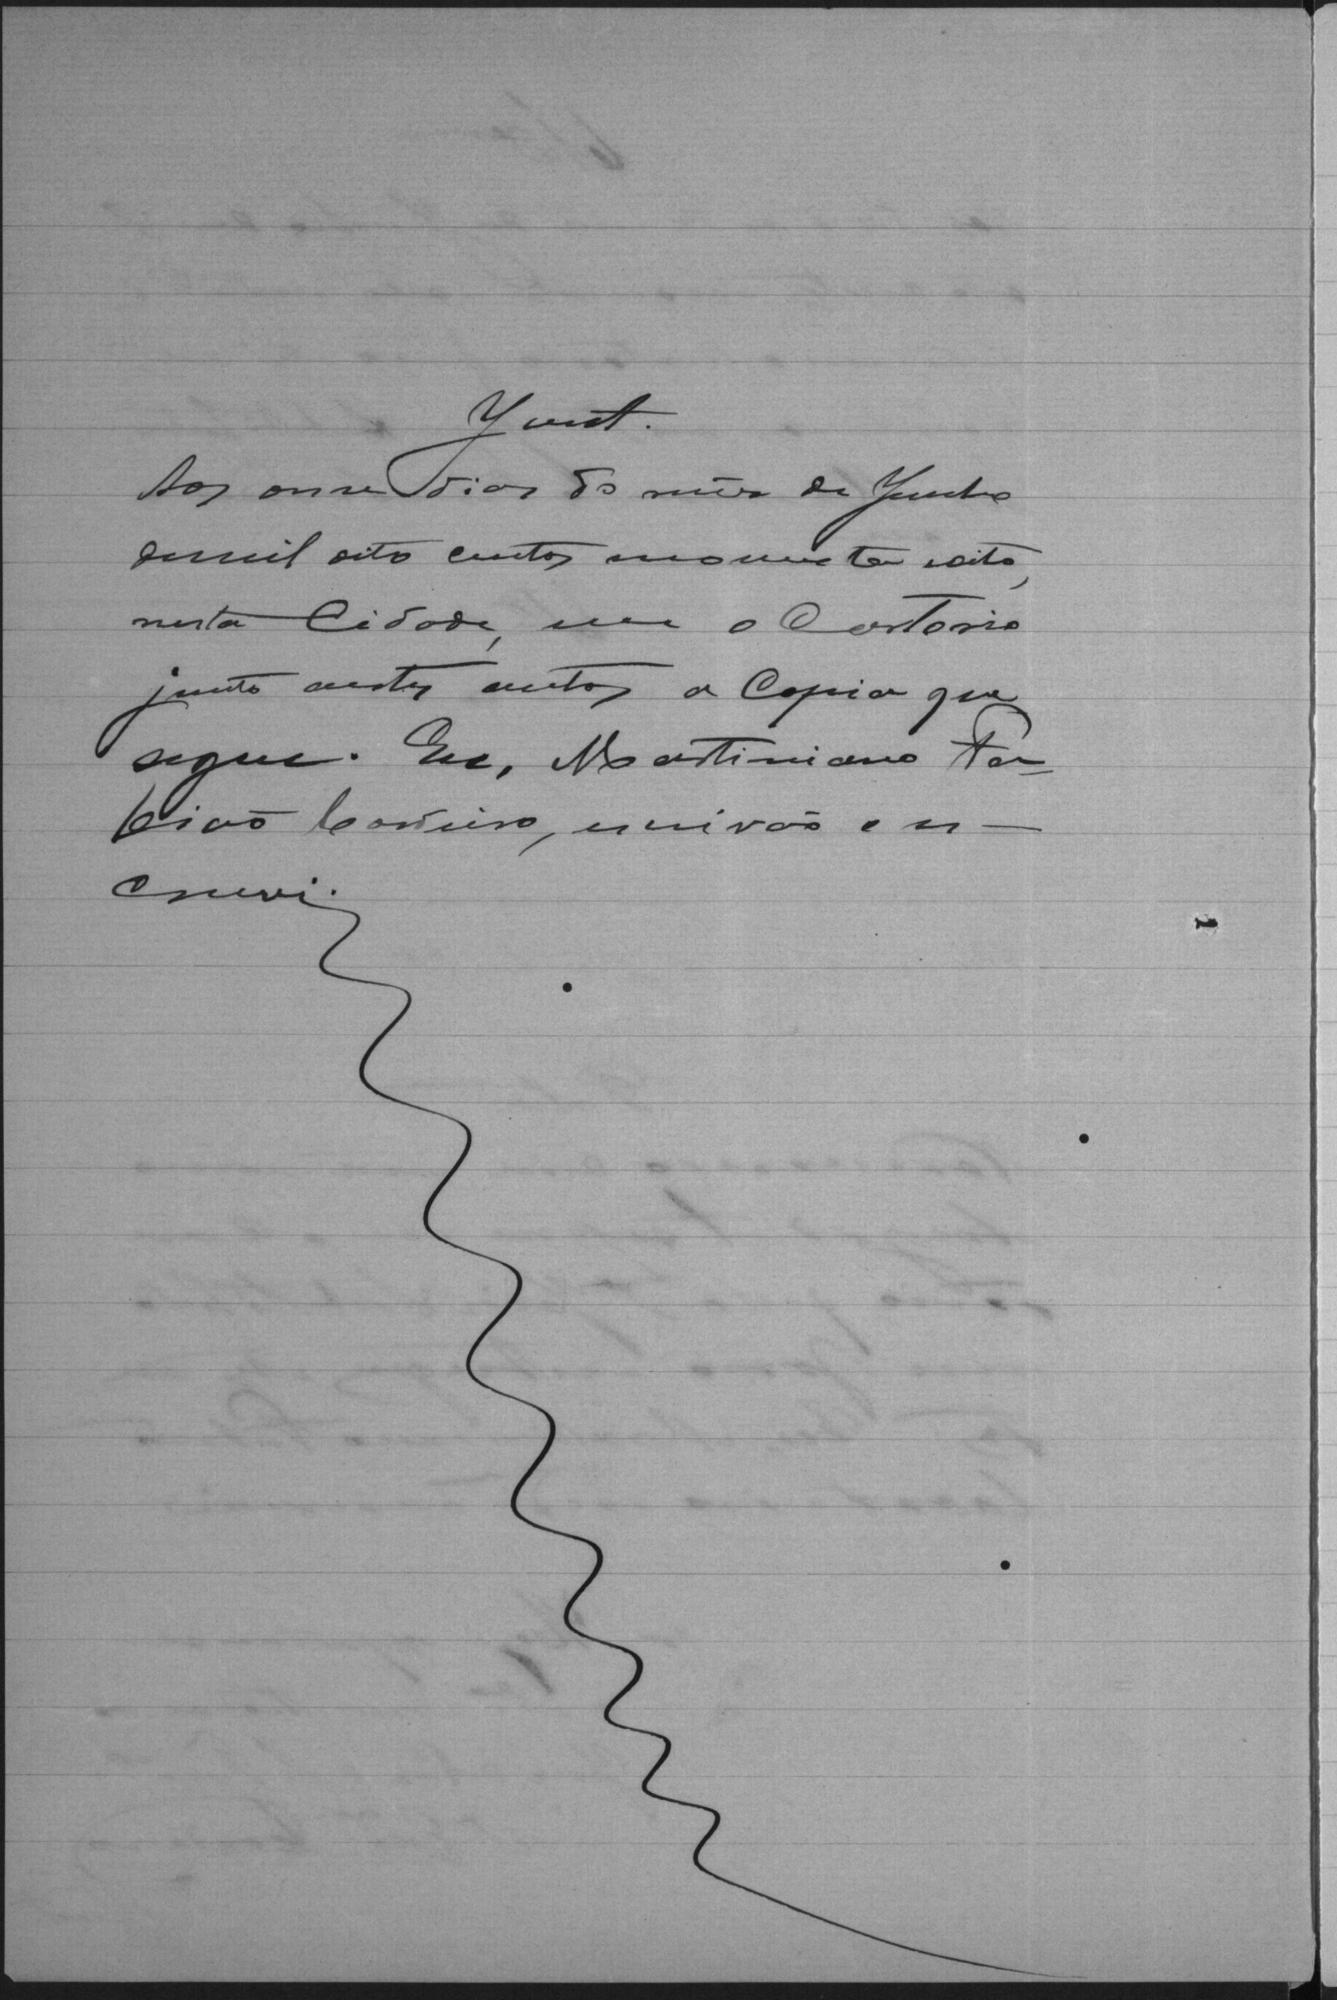 Junt.
Aos onze dias do mês de Junho
demil oito centos noventa eoito,
nesta Cidade, em o Cartorio
junto aestes autos a Copia que
segue. Eu, Martiniano Fa-
bião Cordeiro, escrivão o es-
crevi.